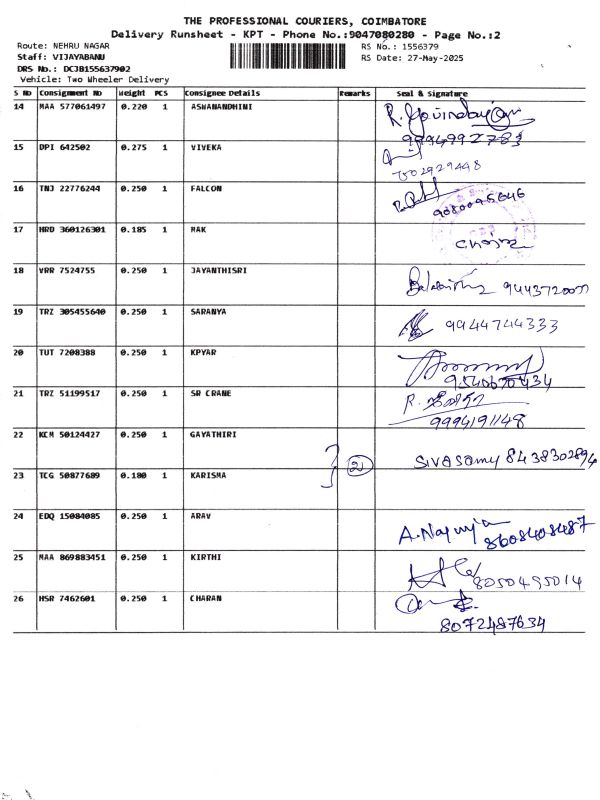 THE PROFESSIONAL COURIERS, COIMBATORE
Delivery Runsheet - KPT - Phone No.:9047080280 - Page No.:2
Route: NEHRU NAGAR RS No.: 1556379
Staff: VIJAYABANU RS Date: 27-May-2025
DRS No.: DCJB155637902
Vehicle: Two Wheeler Delivery
S No Consignment No Weight PCS Consignee Details Remarks Seal & Signature
14 MAA 577061497 0.220 1 ASWANANDHINI
9994992783
15 DPI 642502 0.275 1 VIVEKA
7502929448
16 TNJ 22776244 0.250 1 FALCON
9080095646
17 HRD 360126301 0.185 1 MAK
18 VRR 7524755 0.250 1 JAYANTHISRI
19 TRZ 305455640 0.250 1 SARANYA
9944744333
20 TUT 7208388 0.250 1 KPYAR
9540670434
21 TRZ 51199517 0.250 1 SR CRANE
9994191148
22 KCM 50124427 0.250 1 GAYATHIRI
Sivasamy 8438302894
23 TCG 50877689 0.180 1 KARISMA
24 EDQ 15084085 0.250 1 ARAV
8608408487
25 MAA 869883451 0.250 1 KIRTHI
8050495014
26 HSR 7462601 0.250 1 CHARAN
8072487634